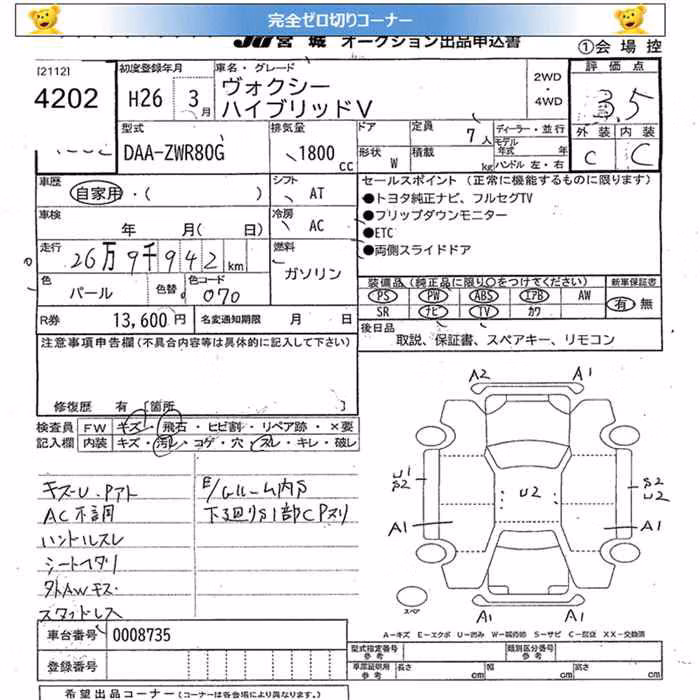 完全ゼロ切りコーナー
JU宮城 オークション出品申込書
①会場控
[2112]
4202
初度登録年月
H26 3月
車名・グレード
ヴォクシー
ハイブリッドV
2WD
・
4WD
評価点
3.5
外装 内装
C C
型式
DAA-ZWR80G
排気量
1800 cc
ドア
形状 W
定員 7人
積載 kg
ディーラー・並行
モデル年式 年
ハンドル 左・右
車歴
自家用・( )
シフト AT
車検 年 月( 日)
冷房 AC
走行 26万9千942km
燃料
ガソリン
色
パール
色替
色コード
070
R券 13,600円
名変通知期限 月 日
セールスポイント (正常に機能するものに限ります)
●トヨタ純正ナビ、フルセグTV
●フリップダウンモニター
●ETC
●両側スライドドア
装備品(純正品に限り○をつけてください)
新車保証書
PS PW ABS エアB AW
SR ナビ TV カワ
有 無
後日品
取説、保証書、スペアキー、リモコン
注意事項申告欄(不具合内容等は具体的に記入して下さい)
修復歴 有 [箇所 ]
検査員 FW キズ・飛石・ヒビ割・リペア跡・×要
記入欄 内装 キズ・汚レ・コゲ・穴・スレ・キレ・破レ
キズ・U・Pアト
AC不調
ハンドルスレ
シートヘタリ
外AWキズ
スタッドレス
E/Gルーム内S
下廻りS1部CPヌリ
A2 A1
U1
S2
U2
S2
U2
A1 A1
A1 A1
スペア
A－キズ E－エクボ U－凹み W－補修跡 S－サビ C－腐蝕 XX－交換済
車台番号 0008735
登録番号
型式指定番号
参考
類別区分番号
参考
車庫証明用
参考
長さ cm 幅 cm 高さ cm
希望出品コーナー(コーナーは各会場により異なります。)